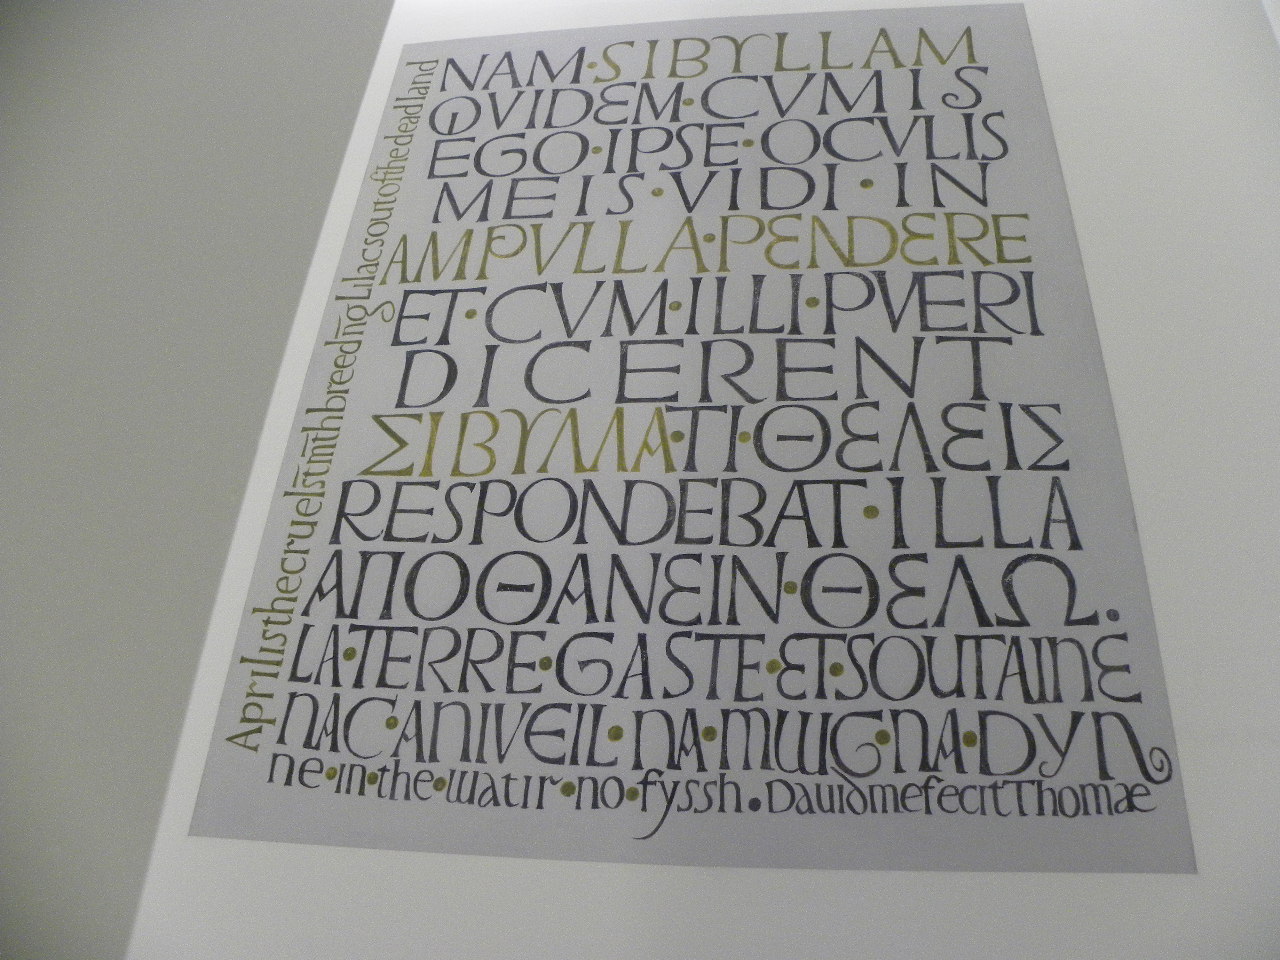 NAM·SIBYLLAM
QVIDEM·CVMIS
EGO·IPSE·OCVLIS
MEIS·VIDI·IN
AMPVLLA·PENDERE
ET·CVM·ILLI·PVERI
DICERENT
ΣΙΒΥΛΛΑ·ΤΙ·ΘΕΛΕΙΣ
RESPONDEBAT·ILLA
ΑΠΟΘΑΝΕΙΝ·ΘΕΛΩ.
LA·TERRE·GASTE·ET·SOUTAINE
NAC·ANIVEIL·NA·MWG·NA·DYN
ne·in·the·watir·no·fyssh.DauidmefecitThomae
Aprilisthecruelst̄m̄thbreedn̄gLilacsoutofthedeadland